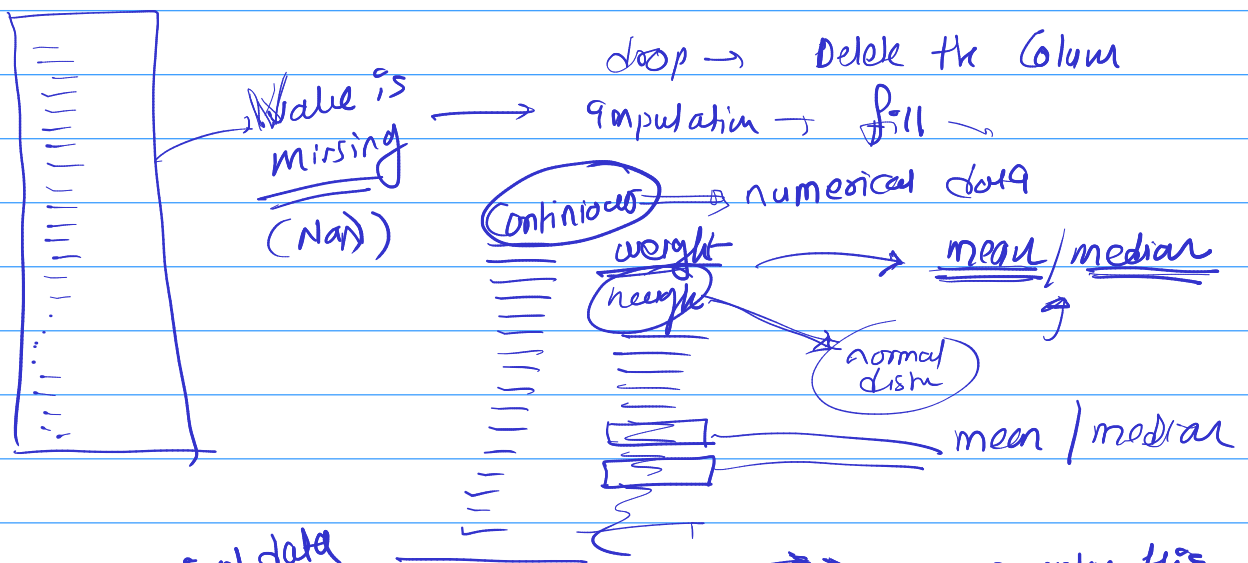 drop → Delete the Colum
Value is
missing
(NaN)
imputation → fill
Continious → numerical data
weight → mean / median
height
normal
distn
mean / median
data
this